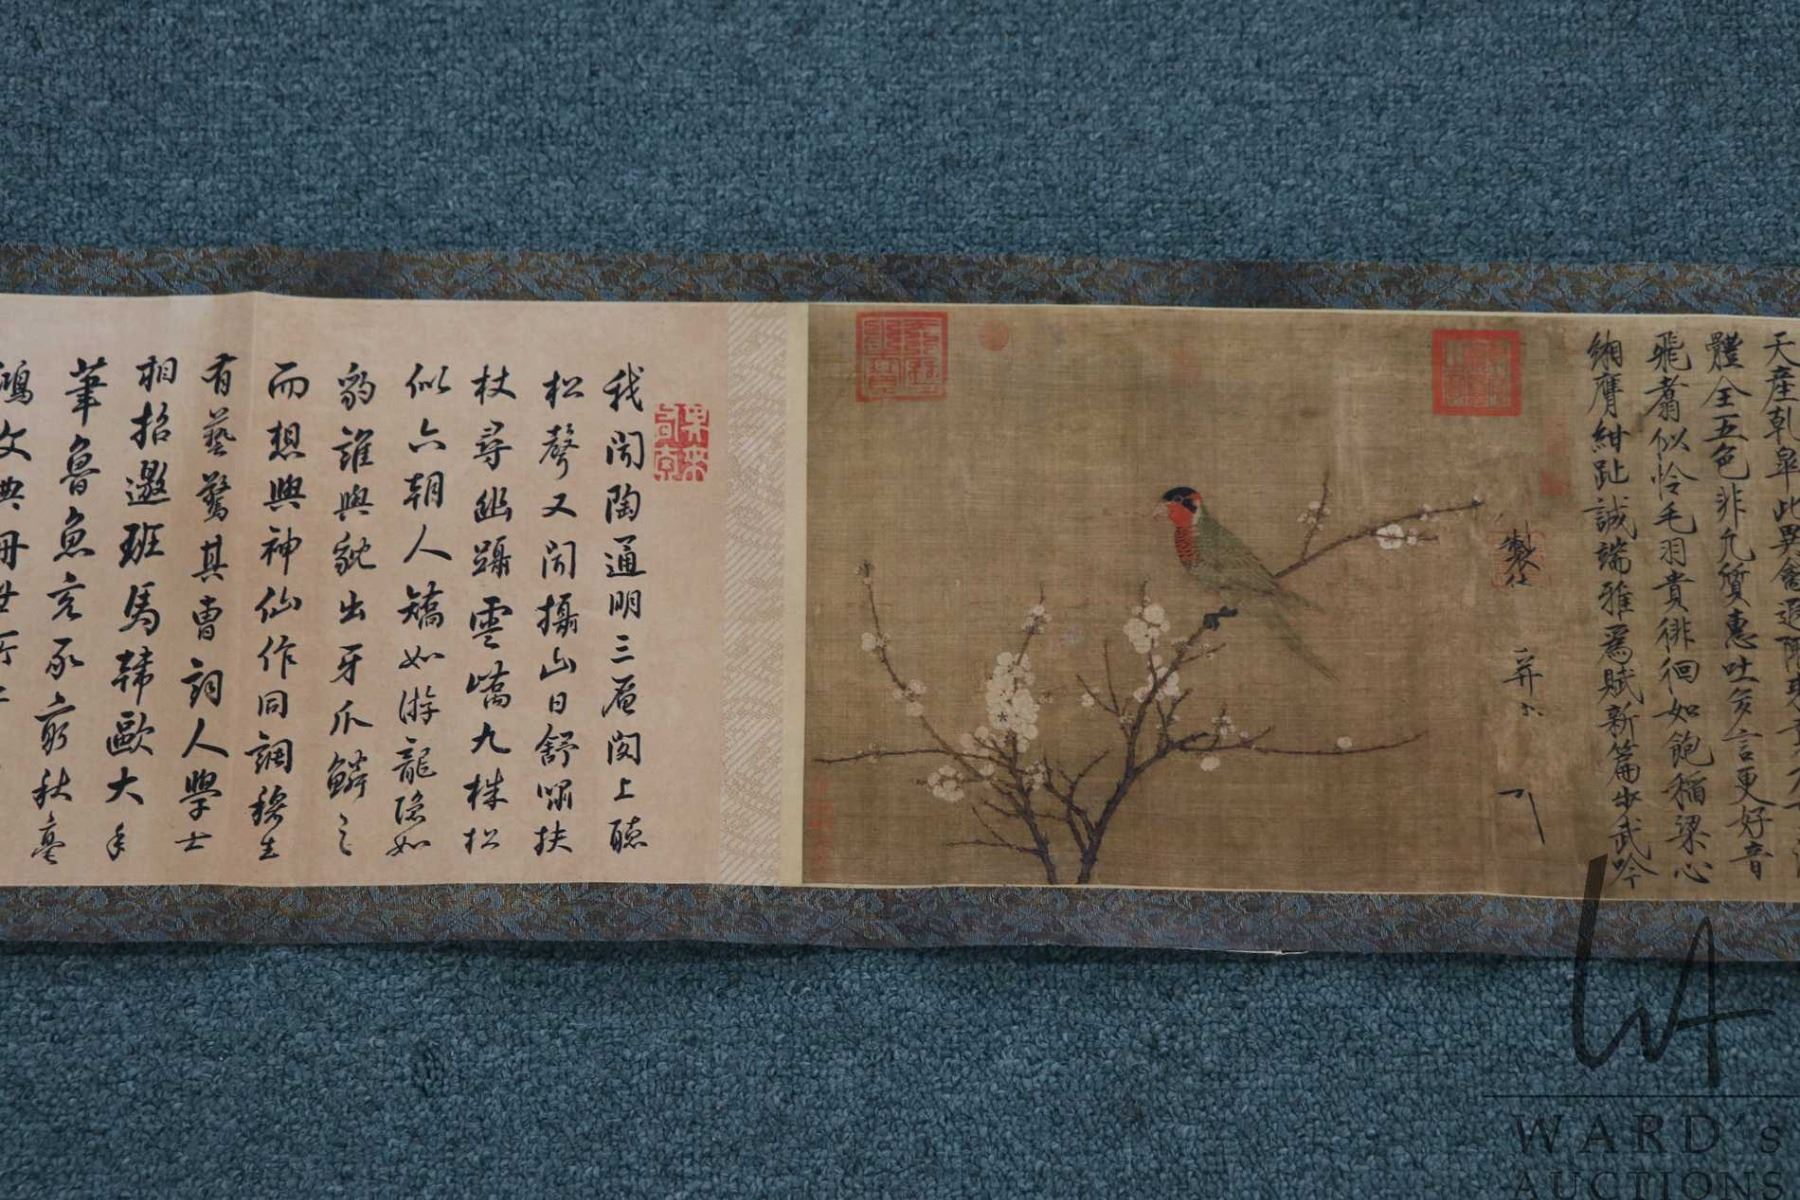 天產乾皋此異禽遐陬來貢
體全五色非凡質惠吐多言更好音
飛翥似怜毛羽貴徘徊如飽稻粱心
緗膺紺趾誠端雅為賦新篇步武吟
製
并
我聞陶通明三層閣上聽
松聲又聞攝山日舒嘯扶
杖尋幽躡雲嶠九株松
似六朝人矯如游龍隱如
豹誰與貌出牙爪鱗之
而想與神仙作同調穆生
有藝驚其曹詞人學士
相招邀班馬韓歐大手
筆魯魚亥豕窮秋毫
鴻文典冊世所
WARD's
AUCTIONS